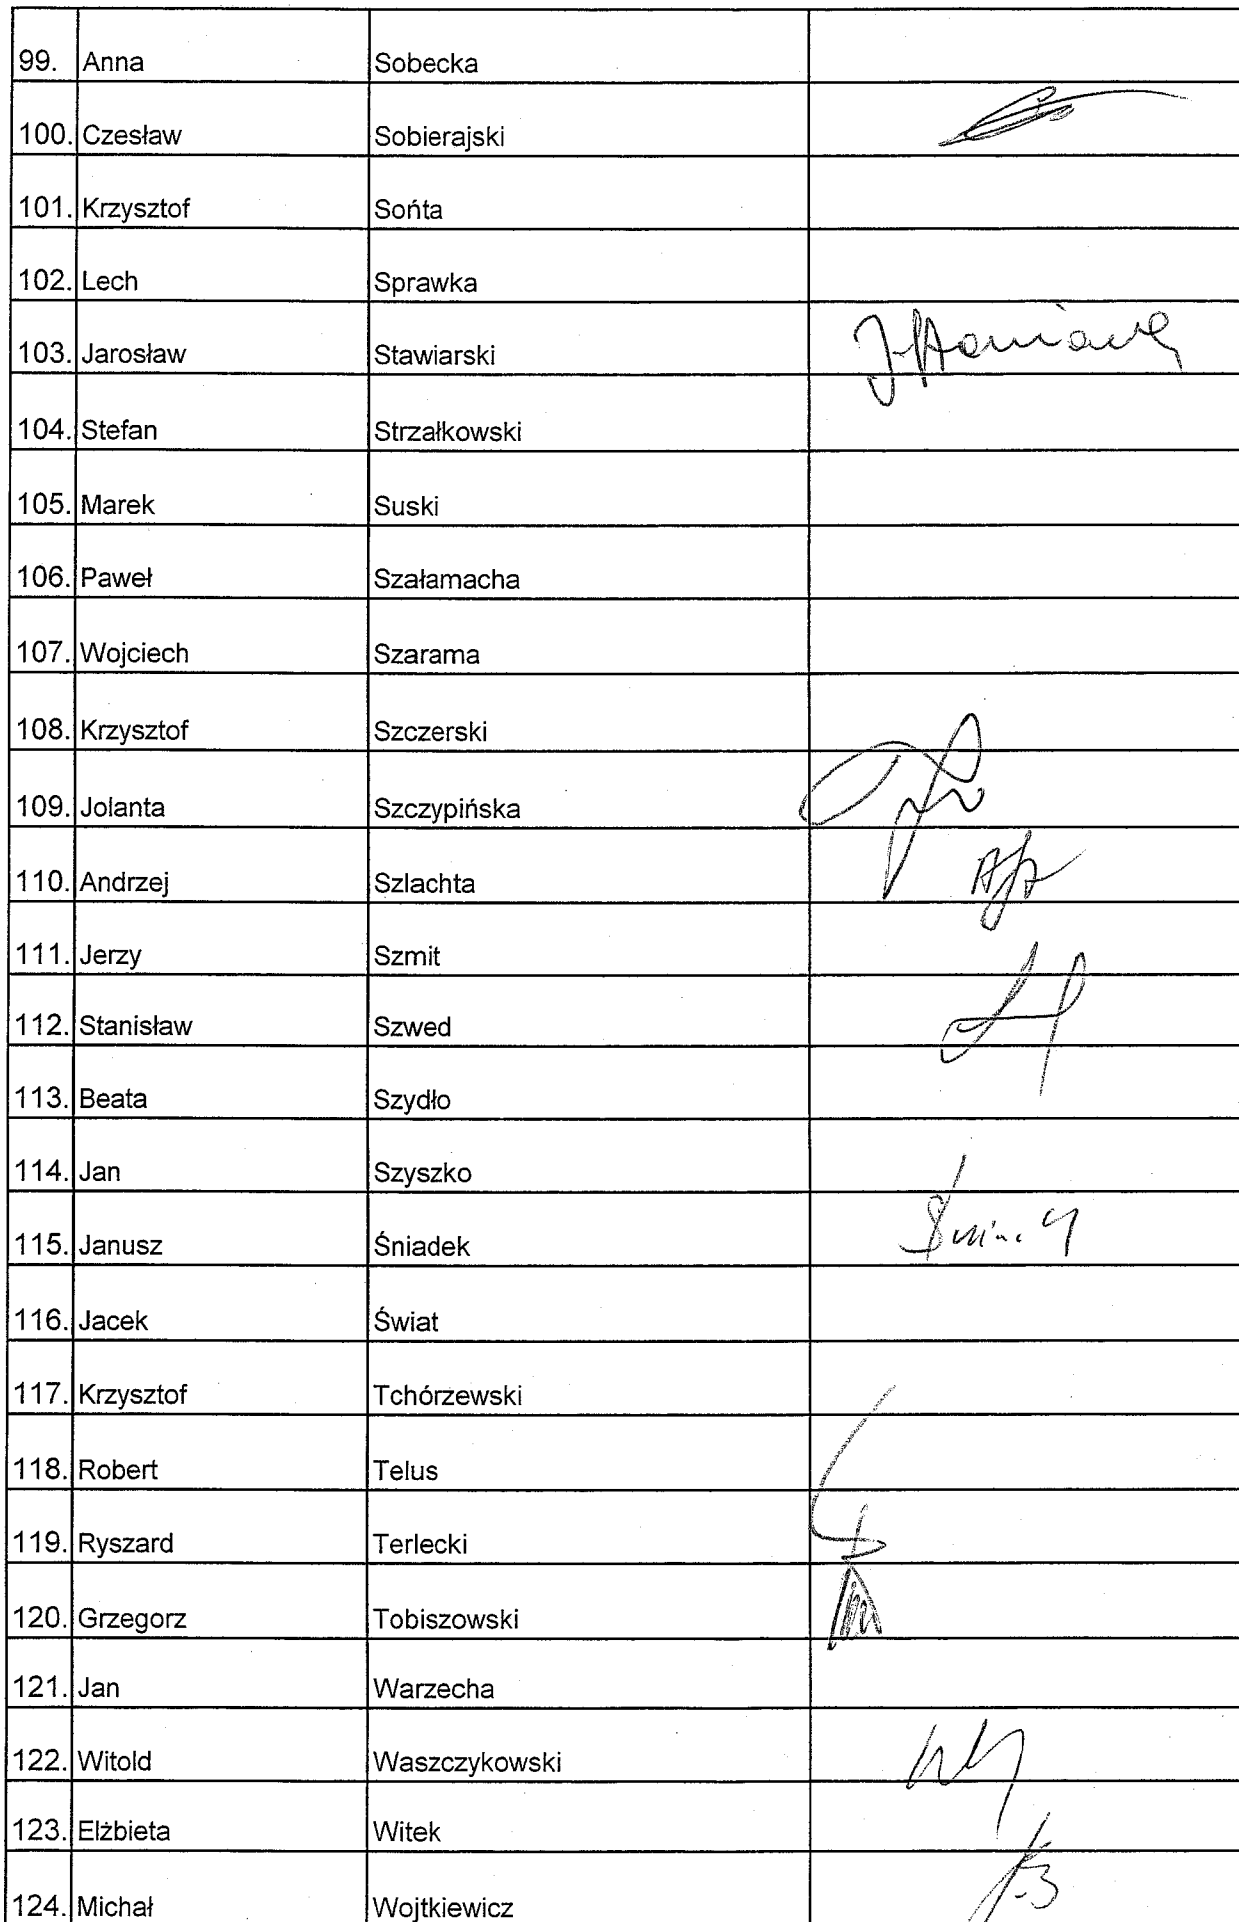 99. Anna Sobecka
100. Czesław Sobierajski
101. Krzysztof Sońta
102. Lech Sprawka
103. Jarosław Stawiarski
104. Stefan Strzałkowski
105. Marek Suski
106. Paweł Szałamacha
107. Wojciech Szarama
108. Krzysztof Szczerski
109. Jolanta Szczypińska
110. Andrzej Szlachta
111. Jerzy Szmit
112. Stanisław Szwed
113. Beata Szydło
114. Jan Szyszko
115. Janusz Śniadek
116. Jacek Świat
117. Krzysztof Tchórzewski
118. Robert Telus
119. Ryszard Terlecki
120. Grzegorz Tobiszowski
121. Jan Warzecha
122. Witold Waszczykowski
123. Elżbieta Witek
124. Michał Wojtkiewicz